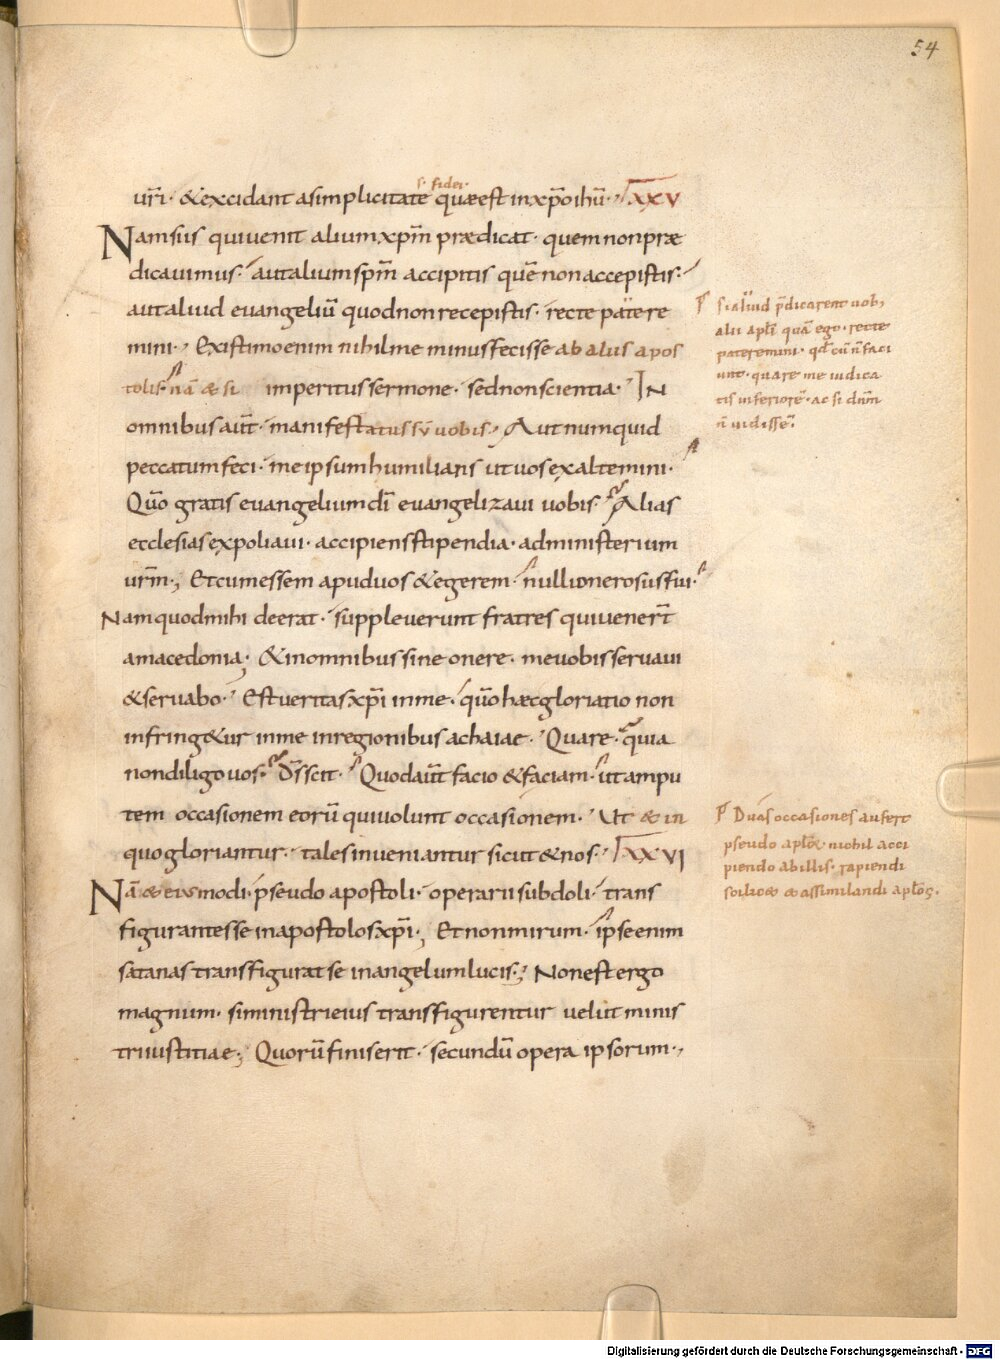 54
s. fidei.
ur̄i· &excidant asimplicitate quæest inxp̄oihū· XXV
Namsiis quiuenit aliumxp̄m prædicat· quemnonpræ
dicauimus· autaliumsp̄m accipitis quē nonaccepistis·
autaliud euangeliū quodnonrecepistis· recte patere
mini· Existimoenim nihilme minusfecisse abaliis apos
tolis· nā & si imperitussermone· sednonscientia· IN
omnibusaūt· manifestatussū uobis· Autnumquid
peccatumfeci· meipsumhumilians utuosexaltemini·
Quō gratis euangeliumdī euangelizaui uobis· Alias
ecclesiasexpoliaui· accipiensstipendia· administerium
ur̄m·, Etcumessem apuduos &egerem· nullionerosusfui·
Namquodmihi deerat· suppleuerunt fratres quiuenerī
amacedonia· &inomnibussine onere· meuobisseruaui
&seruabo· Estueritasxp̄i inme· quōhæcgloriatio non
infring&ur inme inregionibusachaiae· Quare· quia
nondiligouos· D̄sscit· Quodaūt facio &faciam· utampu
tem occasionem eorū quiuolunt occasionem· Ut & in
quogloriantur· talesinueniantur sicut&nos· XXVI
Nā& eiusmodi· pseudo apostoli· operarii subdoli· trans
figurantesse inapostolosxp̄i·, Etnonmirum· ipseenim
satanas transfigurat se inangelumlucis·, Nonestergo
magnum· siministrieius transfigurentur uelut minis
triiustitiae·, Quorū finiserit· secundū opera ipsorum·,
si aliud p̄dicarent uob,
alii apl̄i quā ego· recte
pateremini· qđ cū n̄ faci
unt· quare me iudica
tis inferiorē· ac si dn̄m
n̄ uidissē·
Duas occasiones aufert
pseudo apl̄ nihil acci
piendo abillis· rapiendi
scilic& & assimilandi apl̄oꝝ·
Digitalisierung gefördert durch die Deutsche Forschungsgemeinschaft - DFG